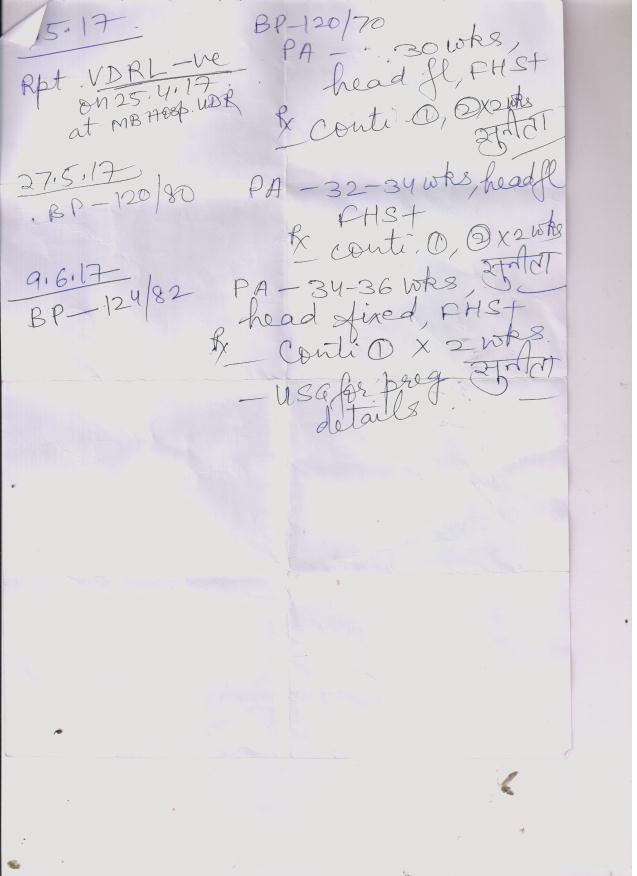 5.17
BP-120/70
PA - 30 wks,
head fl, FHS+
Rpt. VDRL -ve
on 25.4.17
at MB Hosp. UDR
Rx conti ①, ② x 2 wks
सुनीता
27.5.17
BP-120/80
PA - 32-34 wks, head fl
FHS+
Rx conti. ①, ② x 2 wks
सुनीता
9.6.17
BP-124/82
PA - 34-36 wks,
head fixed, FHS+
Rx conti ① x 2 wks.
सुनीता
- USG for preg
details